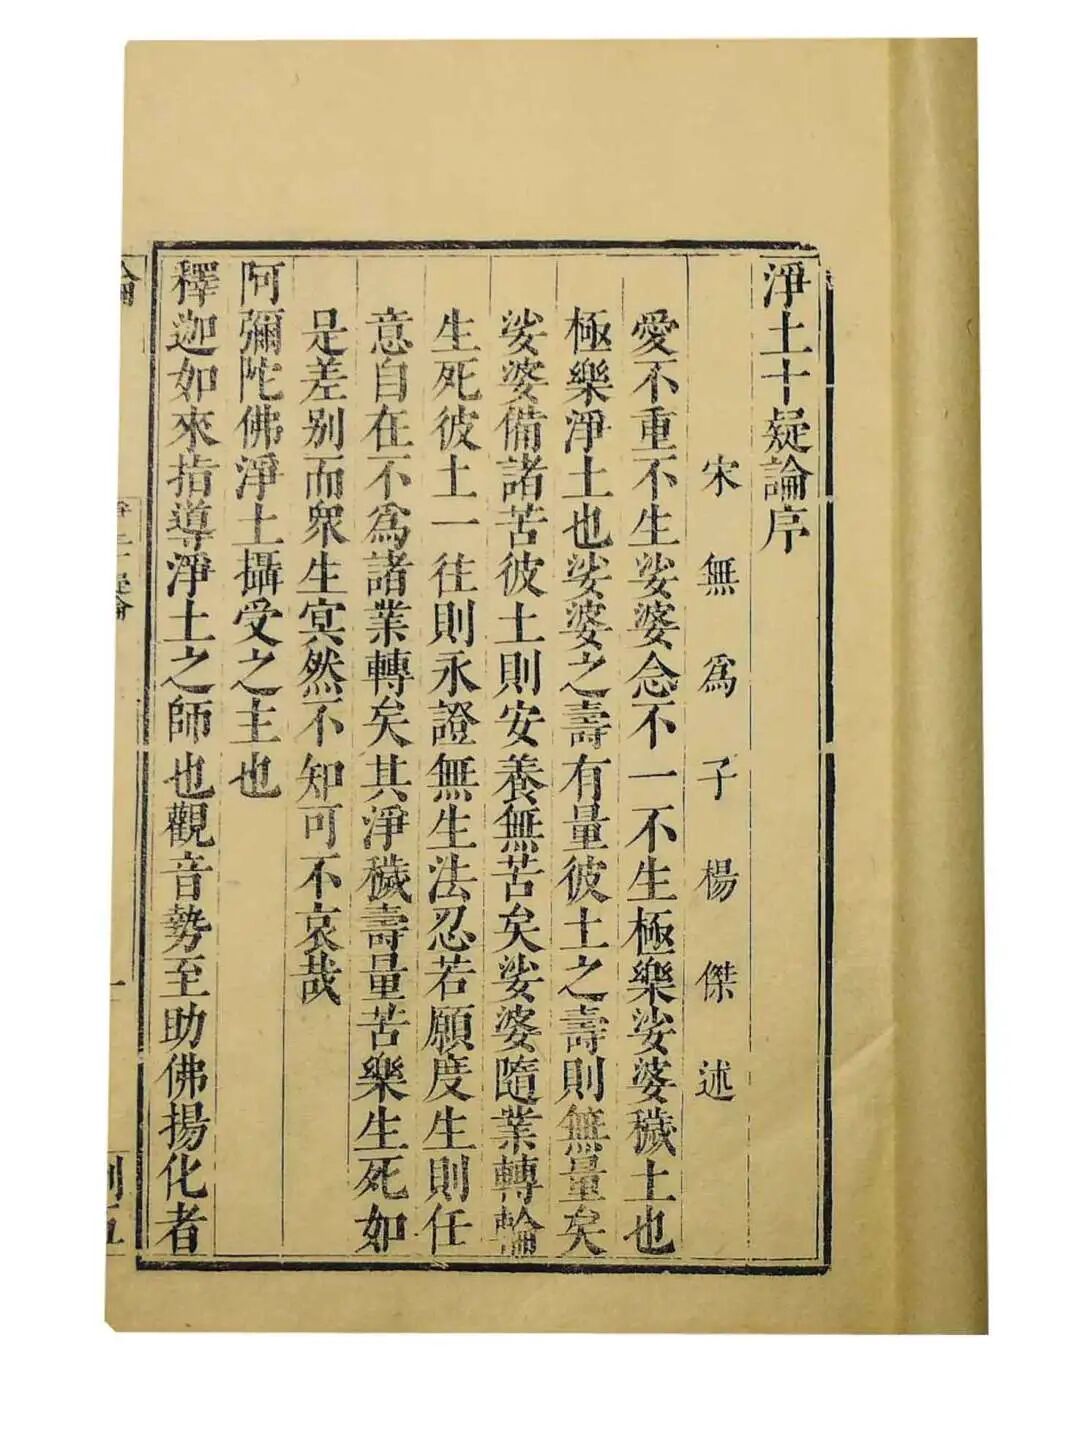 淨土十疑論序
宋無為子楊傑述
愛不重不生娑婆念不一不生極樂娑婆穢土也
極樂淨土也娑婆之壽有量彼土之壽則無量矣
娑婆備諸苦彼土則安養無苦矣娑婆隨業轉輪
生死彼土一往則永證無生法忍若願度生則任
意自在不為諸業轉矣其淨穢壽量苦樂生死如
是差別而眾生冥然不知可不哀哉
阿彌陀佛淨土攝受之主也
釋迦如來指導淨土之師也觀音勢至助佛揚化者